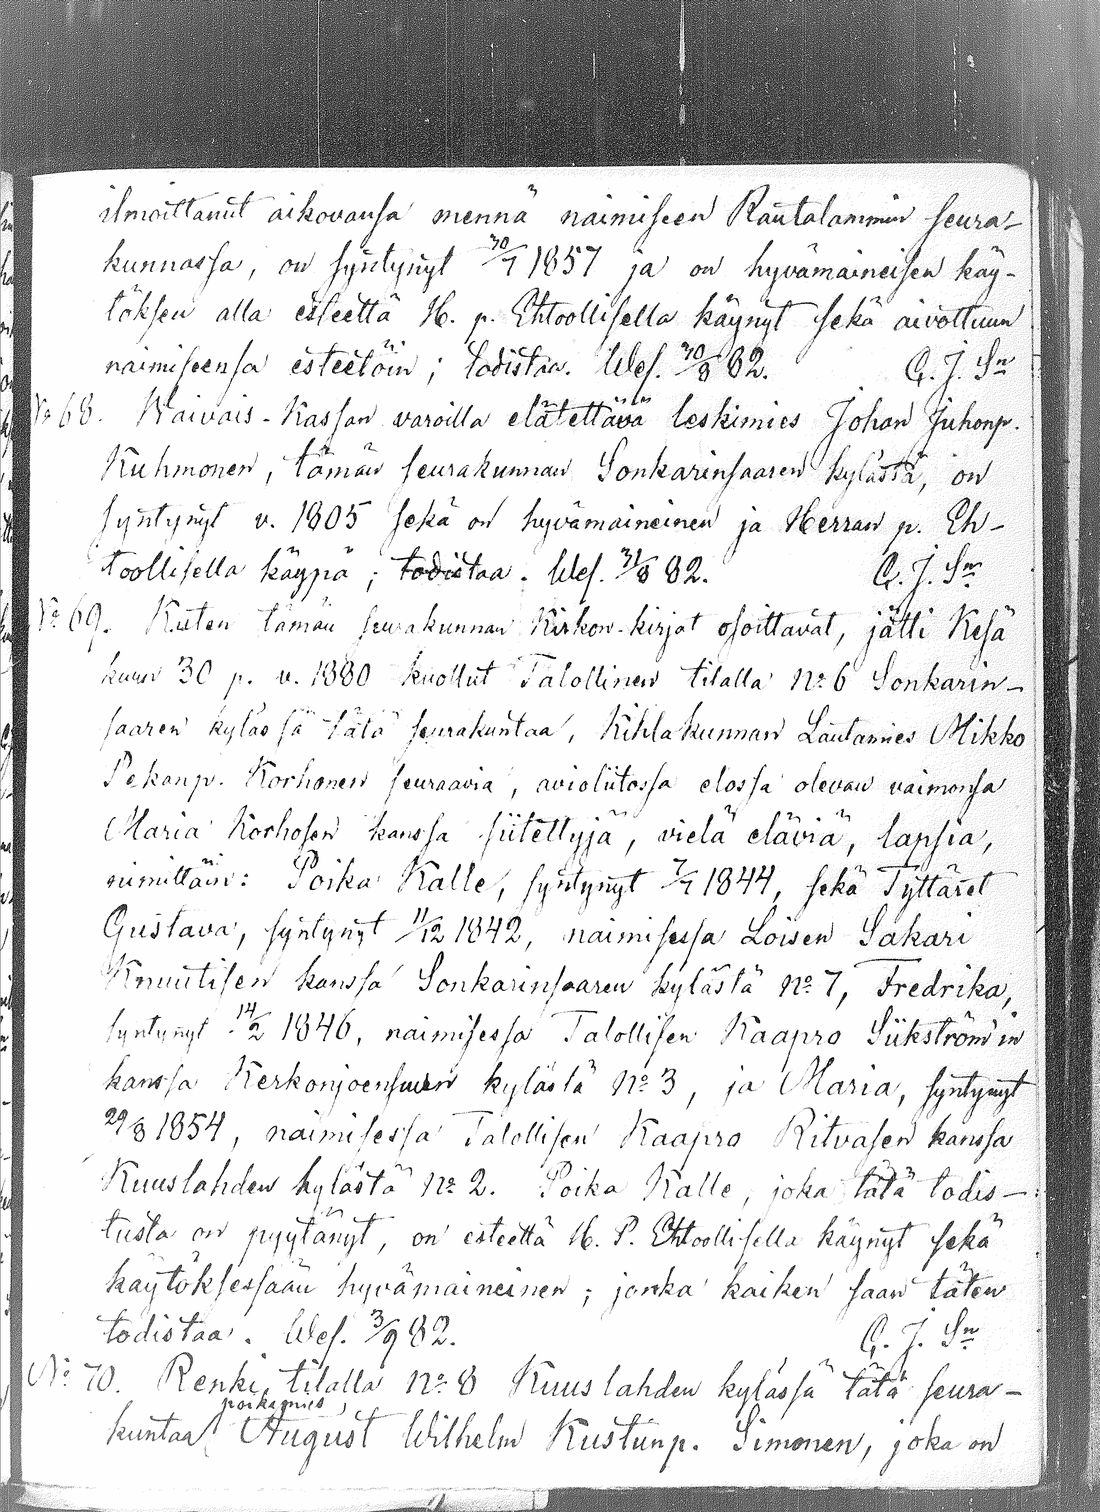 ilmoittanut aikovansa mennä naimiseen Rautalammin seura-
kunnassa, on syntynyt 30/7 1857 ja on hyvämaineisen käy-
töksen alla esteettä H. p. Ehtoollisella käynyt sekä aivottuun
naimiseensa esteetöin; todistaa. Wes. 30/8 82. G. J. Sn
No 68. Waivais-Kassan varoilla elätettävä leskimies Johan Juhonp.
Kuhmonen, tämän seurakunnan Sonkarinsaaren kylästä, on
syntynyt v. 1805 sekä on hyvämaineinen ja Herran p. Eh-
toollisella käypä; todistaa. Wes. 31/8 82. G. J. Sn
No 69. Kuten tämän seurakunnan Kirkon-kirjat osoittavat, jätti Kesä
kuun 30 p. v. 1880 kuollut Talollinen tilalla No 6 Sonkarin-
saaren kylässä tätä seurakuntaa, Kihlakunnan Lautamies Mikko
Pekanp. Korhonen seuraavia, avioliitossa elossa olevan vaimonsa
Maria Korhosen kanssa siitettyjä, vielä eläviä, lapsia,
nimittäin: Poika Kalle, syntynyt 7/7 1844, sekä Tyttäret
Gustava, syntynyt 11/12 1842, naimisessa Loisen Sakari
Knuutisen kanssa Sonkarinsaaren kylästä No 7, Fredrika,
syntynyt 14/2 1846, naimisessa Talollisen Kaapro Siikström'in
kanssa Kerkonjoensuun kylästä No 3, ja Maria, syntynyt
29/8 1854, naimisessa Talollisen Kaapro Ritvasen kanssa
Kuuslahden kylästä No 2. Poika Kalle, joka tätä todis-
tusta on pyytänyt, on esteettä H. P. Ehtoollisella käynyt sekä
käytöksessään hyvämaineinen; jonka kaiken saan täten
todistaa. Wes. 3/9 82. G. J. Sn
No 70. Renki tilalla No 8 Kuuslahden kylässä tätä seura-
poikamies,
kuntaa August Wilhelm Kustunp. Simonen, joka on